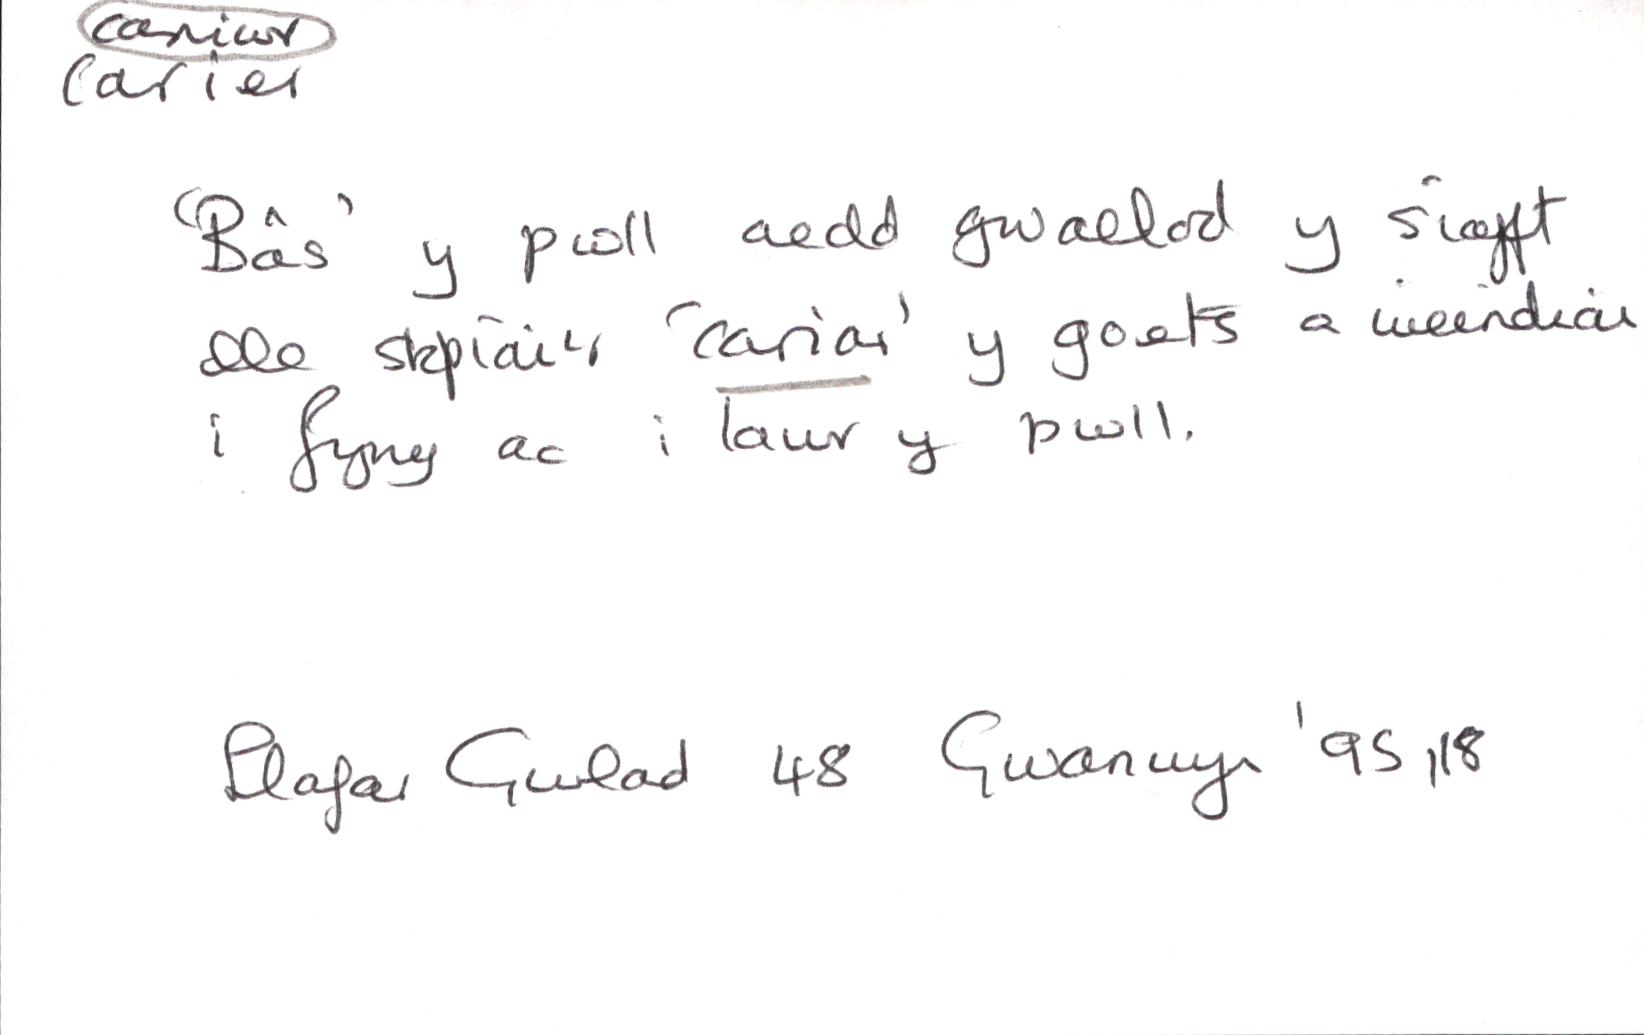 cariwr
carier
'Bâs' y pwll oedd gwaelod y siafft
lle 'cariai' y
i fyny ac i lawr y pwll.
Llafar Gwlad 48 Gwanwyn '95, 18